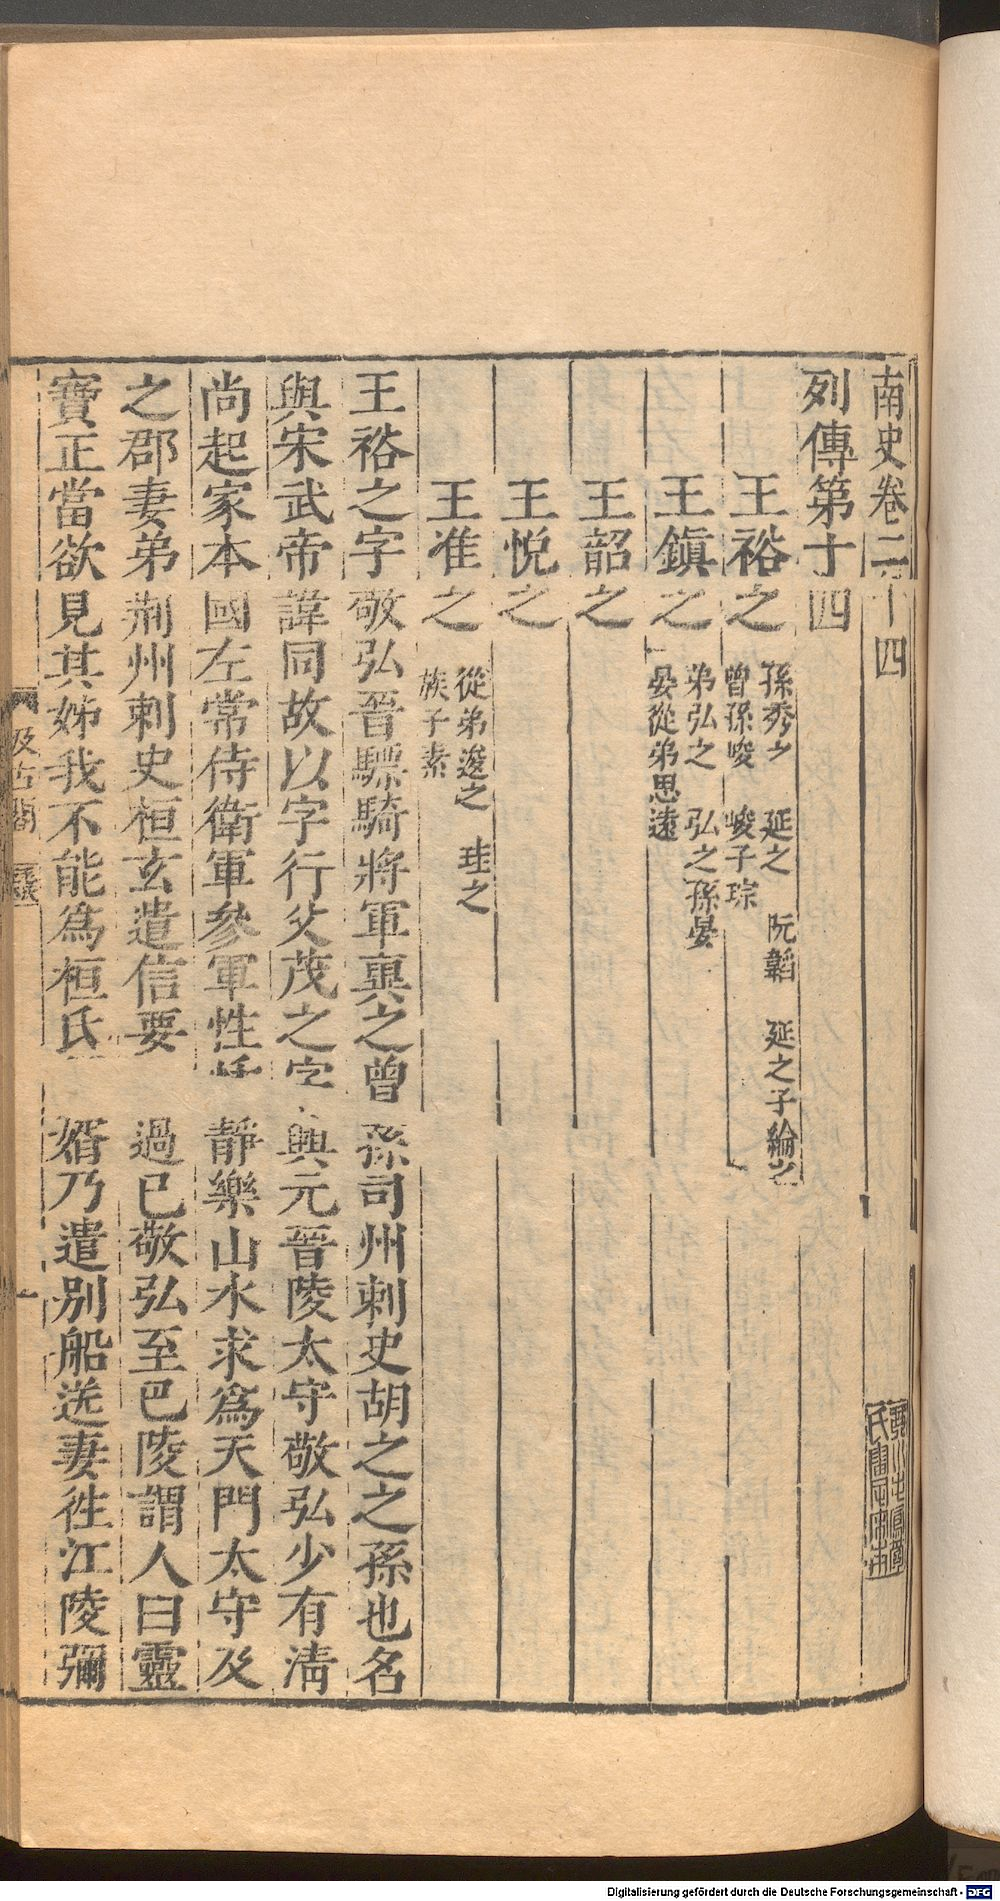 南史卷二十四
列傳第十四
王裕之 孫秀之 延之 阮韜 延之子綸之
曾孫峻 峻子琮
王鎮之 弟弘之 弘之孫晏
晏從弟思遠
王韶之
王悅之
王准之 從弟逡之 珪之
族子素
王裕之字敬弘晉驃騎將軍廙之曾孫司州刺史胡之之孫也名
與宋武帝諱同故以字行父茂之字興元晉陵太守敬弘少有淸
尚起家本國左常侍衛軍參軍性恬靜樂山水求爲天門太守及
之郡妻弟荊州刺史桓玄遣信要過已敬弘至巴陵謂人曰靈
寶正當欲見其姊我不能爲桓氏壻乃遣別船送妻徃江陵彌
汲古閣
Digitalisierung gefördert durch die Deutsche Forschungsgemeinschaft - DFG